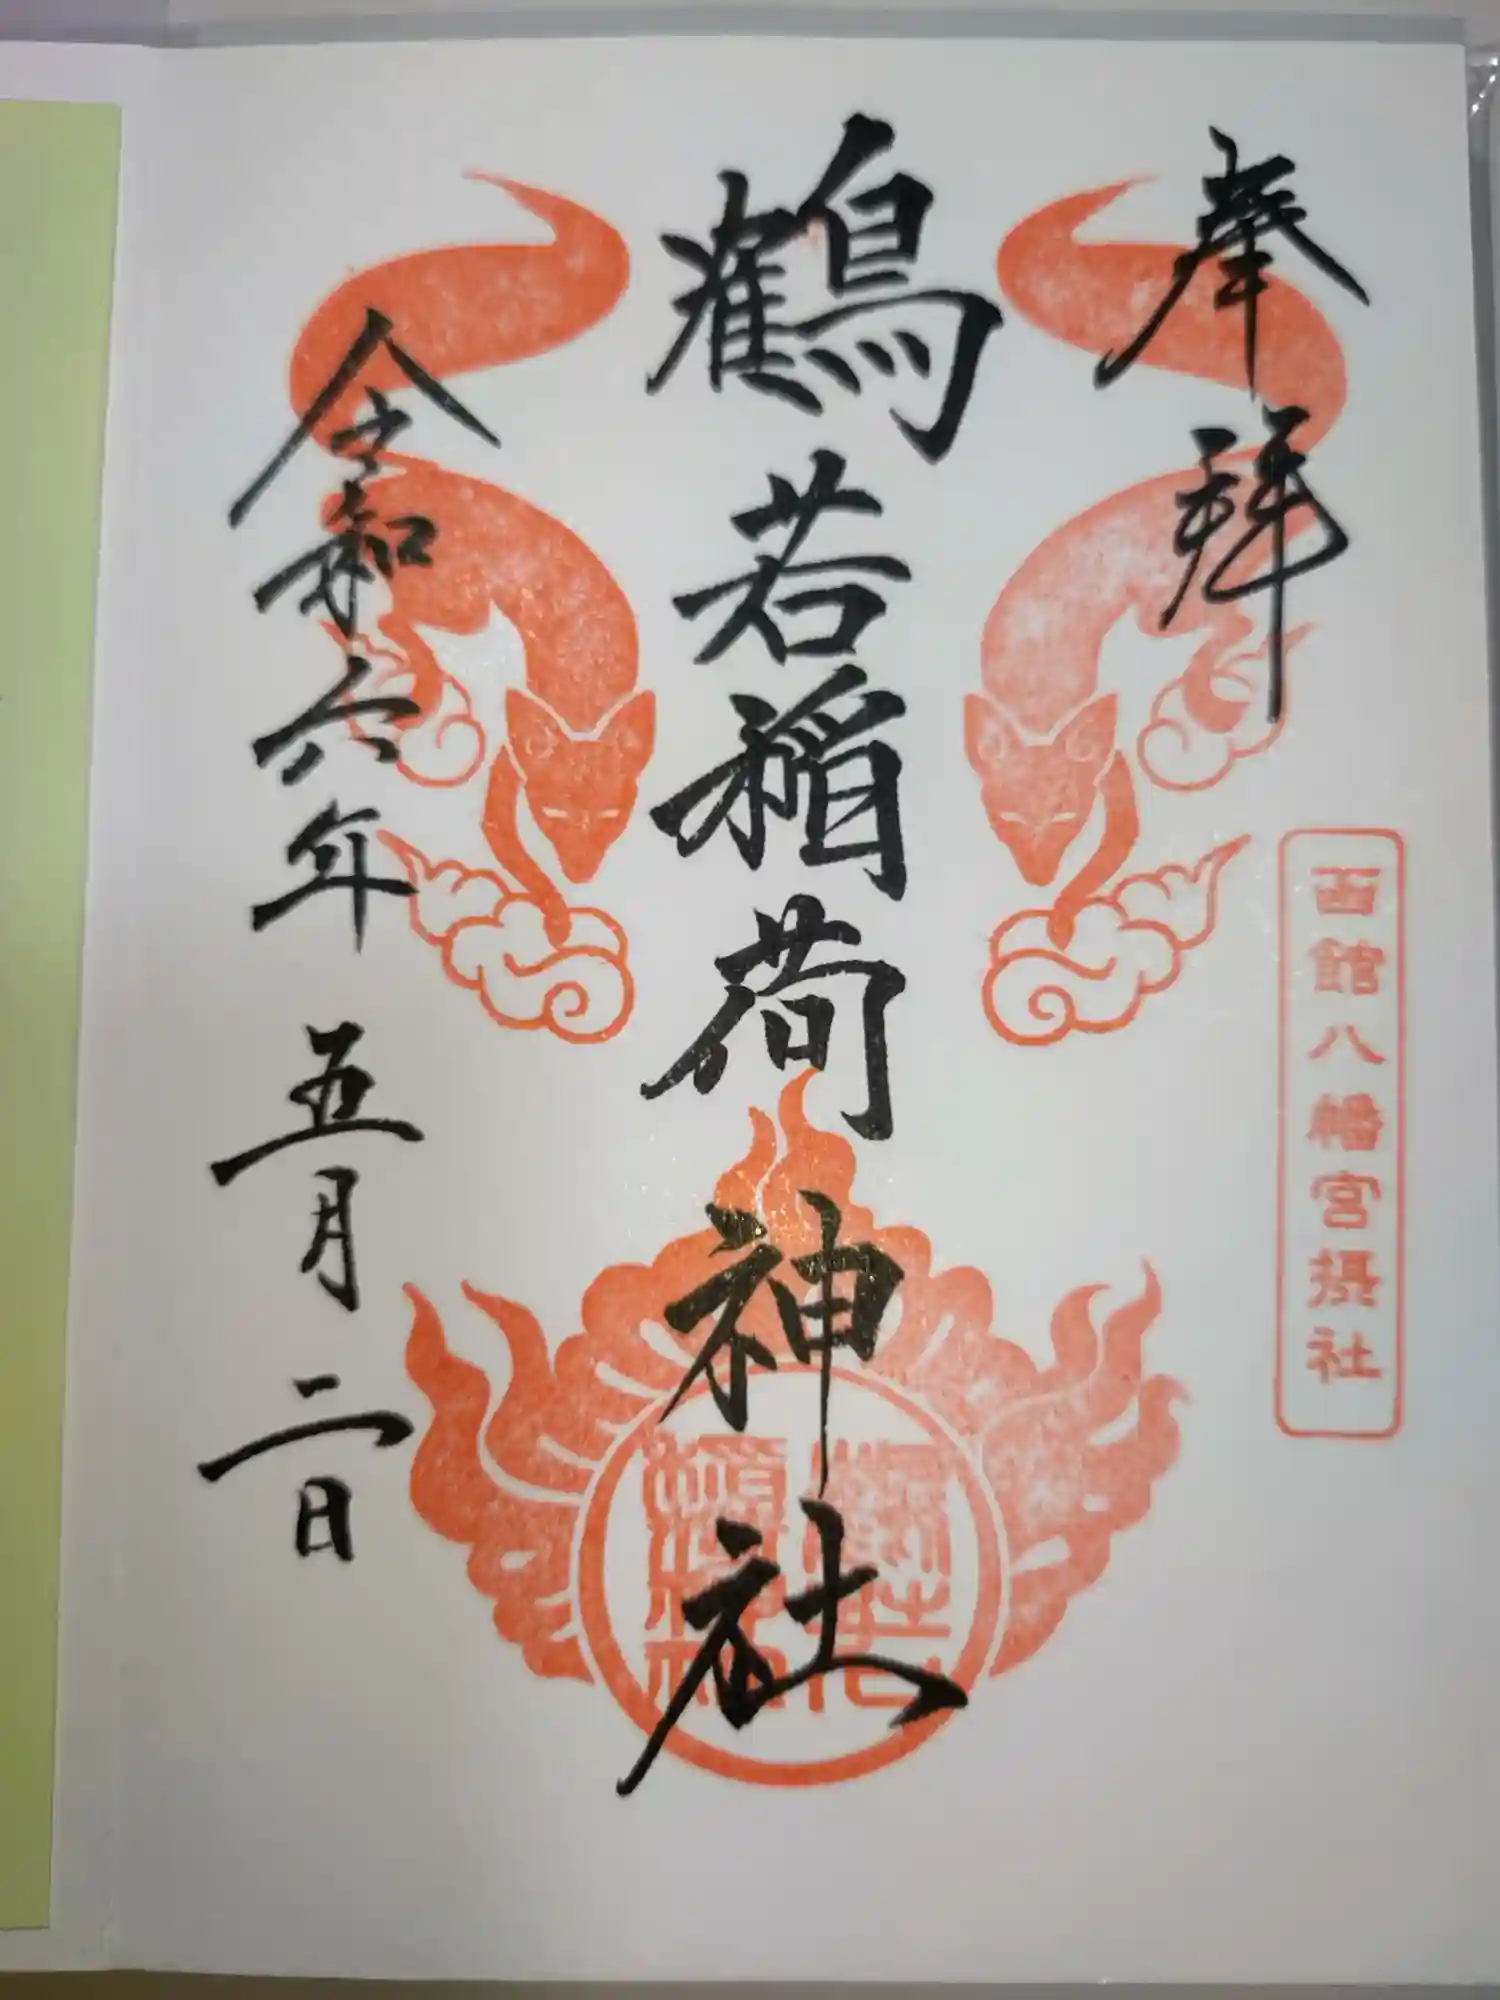 奉拝
函館八幡宮摂社
鶴若稲荷神社
令和六年五月二日